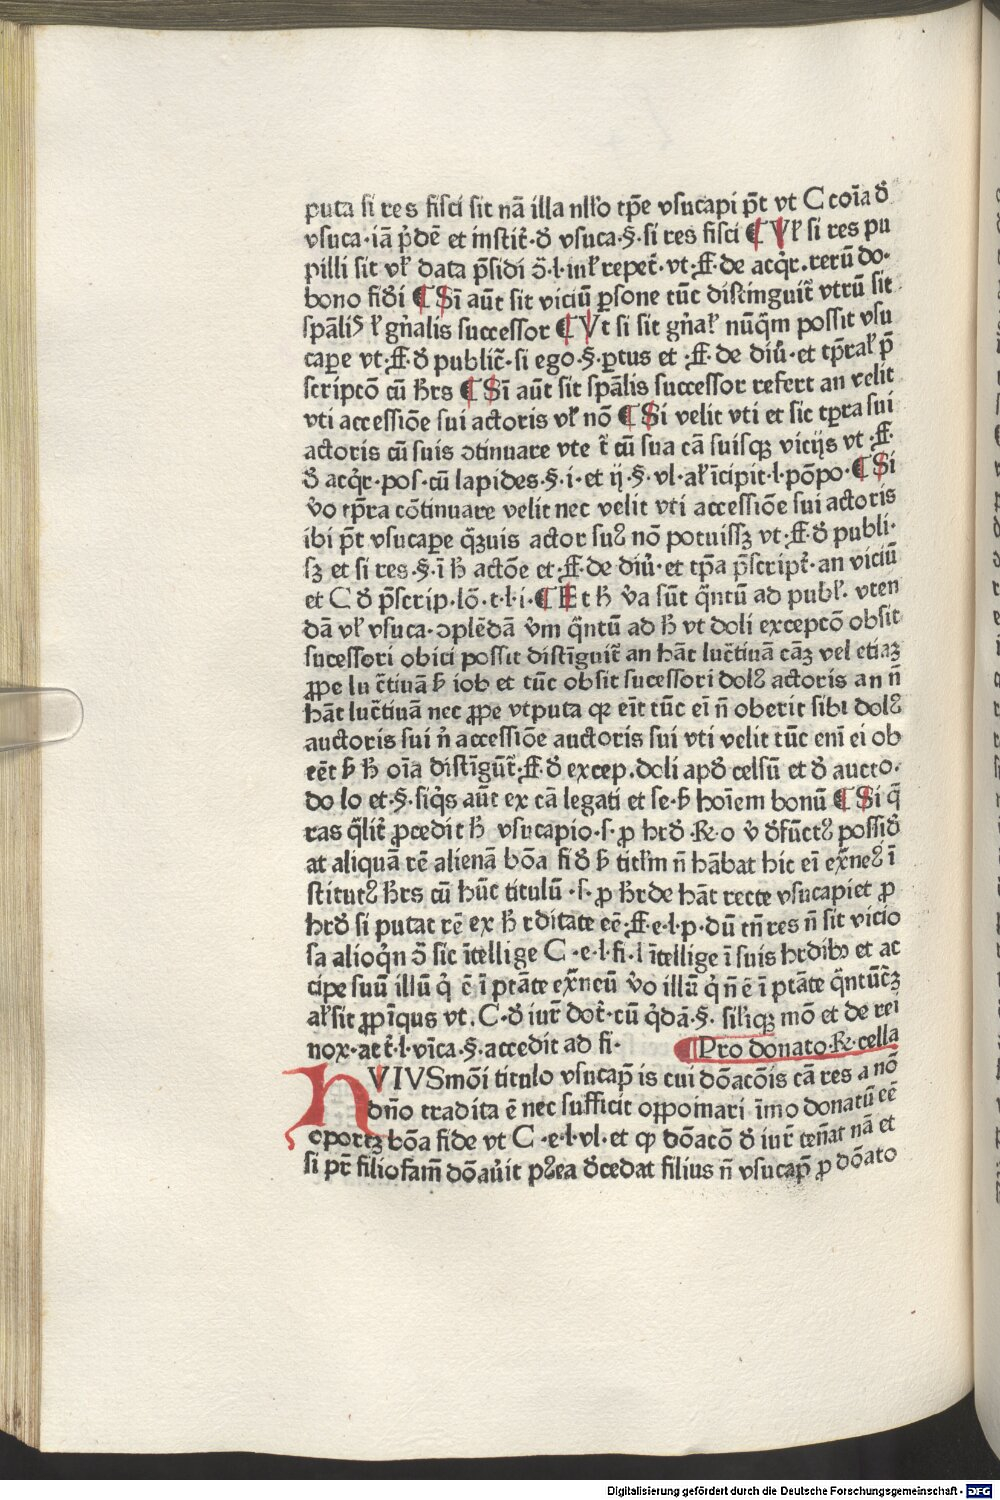 puta si res fisci sit nã illa nllo tp̃e vsucapi p̃t vt C coĩa đ
vsuca·iã p̃dẽ et instit̃·đ vsuca·§·si res fisci ¶ Vł si res pu
pilli sit vł data p̃sidi vt·ff·de acq̃r·rerũ do·
bono fiđi ¶ Sĩ aũt sit viciũ ꝑsone tũc distinguit̃ vtrũ sit
spãlis ł gñalis successor ¶ Vt si sit gñał nũq̃m possit vsu
caꝑe vt·ff·đ public̃·si ego·§·ꝑtus et·ff·de diũ·et tp̃rał p̃
scriptõ cũ hrs ¶ Sĩ aũt sit spãlis successor refert an velit
vti accessiõe sui actoris vł nõ ¶ Si velit vti et sic tꝑra sui
actoris cũ suis ↄtinuare vte t̃ cũ sua cã suisqꝫ vicijs vt·ff·
đ acq̃r·pos·cũ lapides·§·i·et ij·§·vl·ał ĩcipit·l·põpo·¶ Si
ṽo tp̃ra cõtinuare velit nec velit vti accessiõe sui actoris
ibi p̃t vsucaꝑe q̃ꝫuis actor suꝰ nõ potuissꝫ vt·ff·đ publi·
sꝫ et si res·§·ĩ ħ actõe et·ff·de diũ·et tp̃a p̃script̃·an viciũ
et C đ p̃scrip·lõ·t·l·i·¶ Et ħ ṽa sũt q̃ntũ ad publ̃·vten
dã vł vsuca·ↄplẽdã ṽm q̃ntũ ad ħ vt doli exceptõ obsit
sucessori obici possit distĩguit̃ an hãc luc̃tiuã cãꝫ vel etiaꝫ
ꝓpe luc̃tiuã ƀ iob et tũc obsit sucessori dolꝰ actoris an ñ
hãc luc̃tiuã nec ꝓpe vtputa qꝛ eĩt tũc eĩ ñ oberit sibi dolꝰ
auctoris sui ñ accessiõe auctoris sui vti velit tũc enĩ ei ob
eẽt ƀ ħ oĩa distĩgũt̃·ff·đ excep·doli apđ celsũ et đ aucto·
do lo et·§·siq̃s aũt ex cã legati et se·ƀ hoĩem bonũ ¶ Si q̃
ras q̃lit̃ ꝓcedit ħ vsucapio·s·ꝓ hrđ·R·o ṽ đfũctꝰ possiđ
at aliquã rẽ alienã bõa fi đ ƀ titl̃m ñ hãbat hic eĩ ex̃neꝰ ĩ
stitutꝰ hrs cũ hũc titulũ·s·ꝓ hrde hãc recte vsucapiet ꝓ
hrđ si putat rẽ ex ħ rditate eẽ·ff·e·l·p·dũ tñ res ñ sit vicio
sa alioq̃n õ sic ĩtellige C·e·l·fi·l ĩtellige ĩ suis hrdibꝰ et ac
cipe suũ illũ q̃ ẽ ĩ ptãte ex̃neũ ṽo illũ q̃ ñ ẽ ĩ ptãte q̃ntũc̃ꝫ
ał sit ꝓpĩqus vt·C·đ iur̃ dot̃·cũ q̃dã·§·silĩqꝫ mõ et de rei
nox·act̃·l·vĩca·§·accedit ad fi·
¶ Pro donato·R·cella
HVIVSmõi titulo vsucap̃ is cui dõacõis cã res a nõ
dño tradita ẽ nec sufficit oppoinari ĩmo donatũ eẽ
oportꝫ bõa fide vt C·e·l·vl·et ꝙ dõacõ đ iur̃ teñat nã et
si pr̃ filiofam̃ dõaũit pꝰea đcedat filius ñ vsucap̃ ꝓ dõato
Digitalisierung gefördert durch die Deutsche Forschungsgemeinschaft - DFG